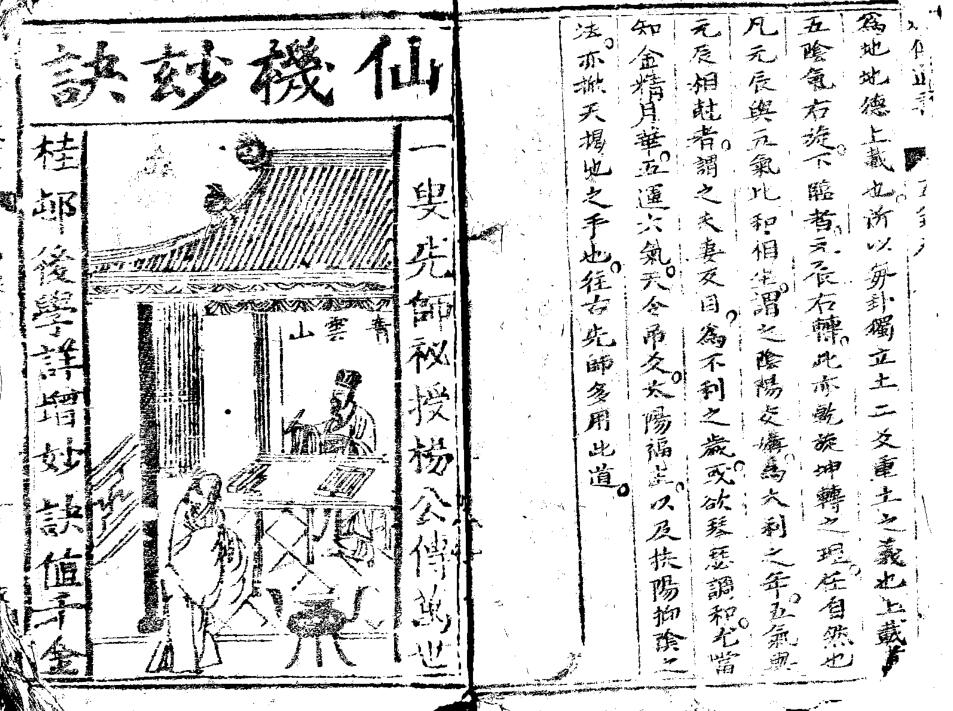 為地地德上載也所以每卦獨立土二爻重土之義也上載
五陰氣右旋。下臨者。元辰右轉。此亦乾旋坤轉之理在自然也
凡元辰與元氣比和相生。謂之陰陽交媾為大利之年。五氣與
元辰相尅者。謂之夫妻反目。為不利之歲。或欲琴瑟調和。尤當
知金精月華。五運六氣。天令帝爻。太陽福星。以及扶陽抑陰之
法。亦掀天揭地之手也。往古先師多用此道。
仙機玅訣
一叟先師秘授楊公傳萬世
青雲山
桂邨後學詳增妙訣值千金